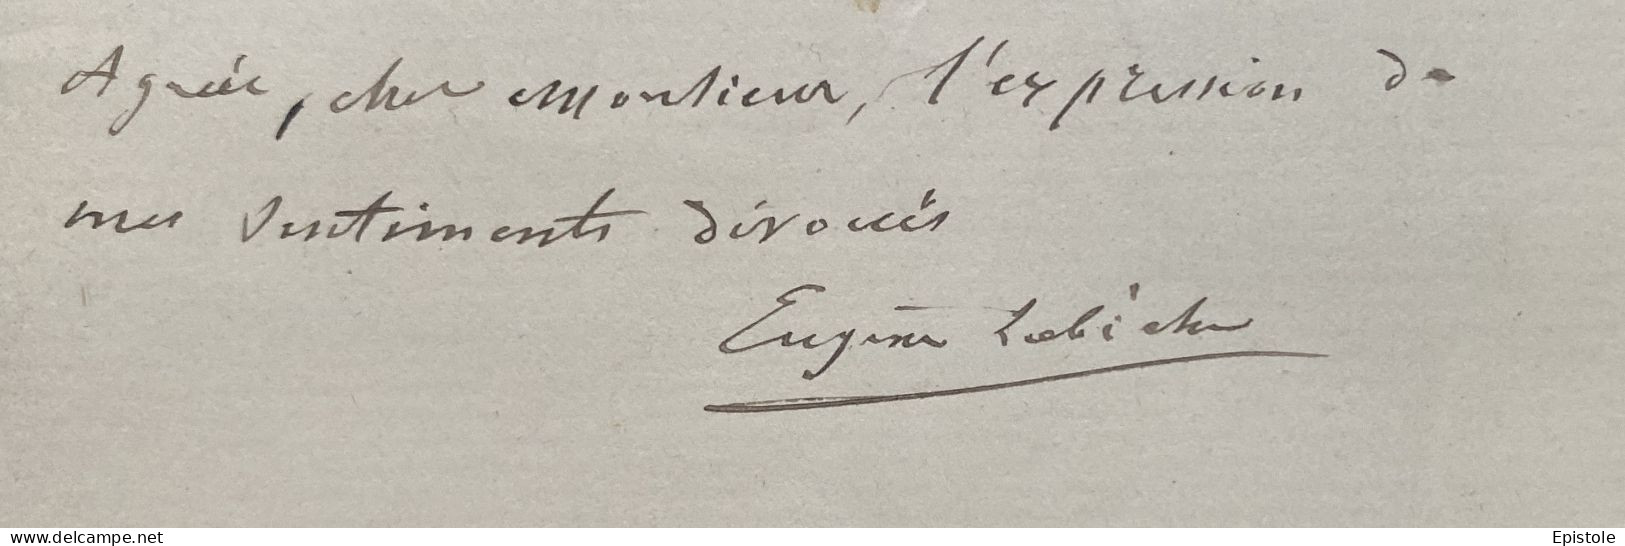 Agréez, cher Monsieur, l'expression de
mes sentiments dévoués
Eugène Labiche
delcampe.net
Epistole